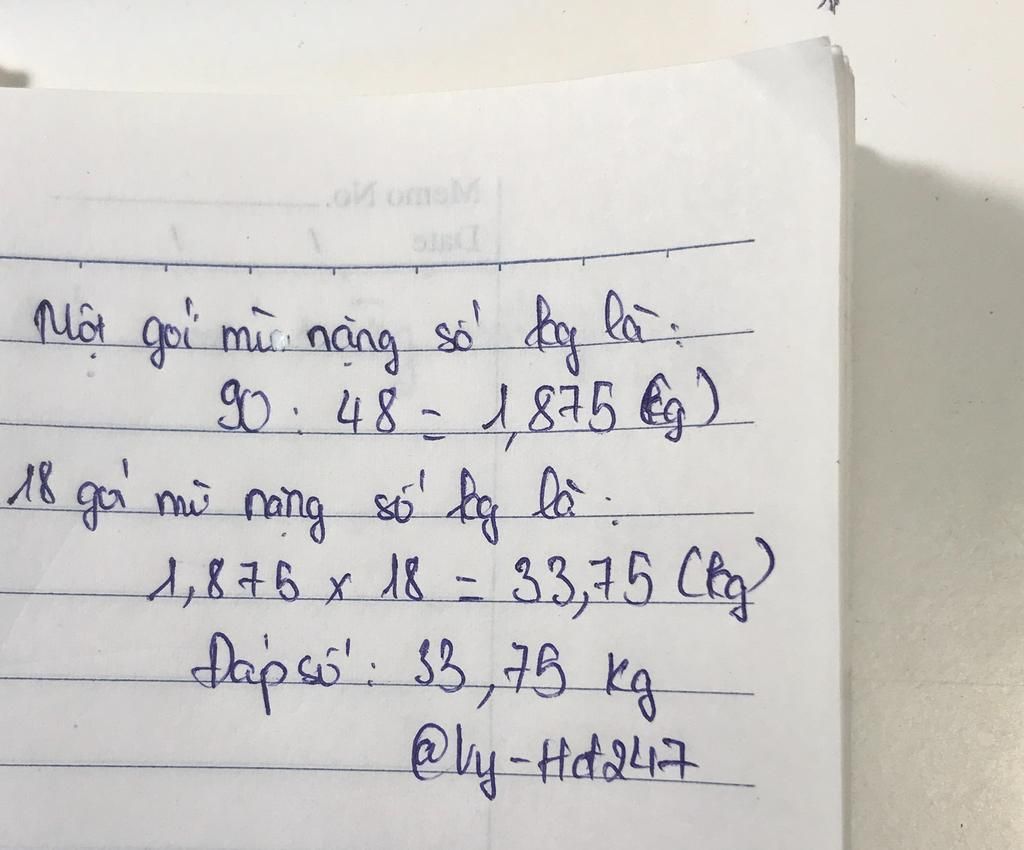 Memo No.
Date / /
Một gói mì nặng số kg là:
90 : 48 = 1,875 (kg)
18 gói mì nặng số kg là:
1,875 x 18 = 33,75 (kg)
Đáp số: 33,75 kg
@Vy-Hd247